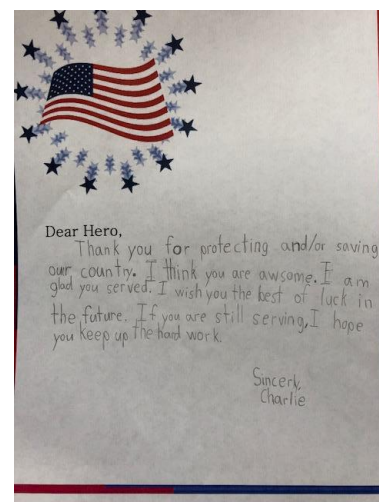 Dear Hero,
Thank you for protecting and/or saving
our country. I think you are awsome. I am
glad you served. I wish you the best of luck in
the future. If you are still serving, I hope
you keep up the hard work.
Sincerly,
Charlie